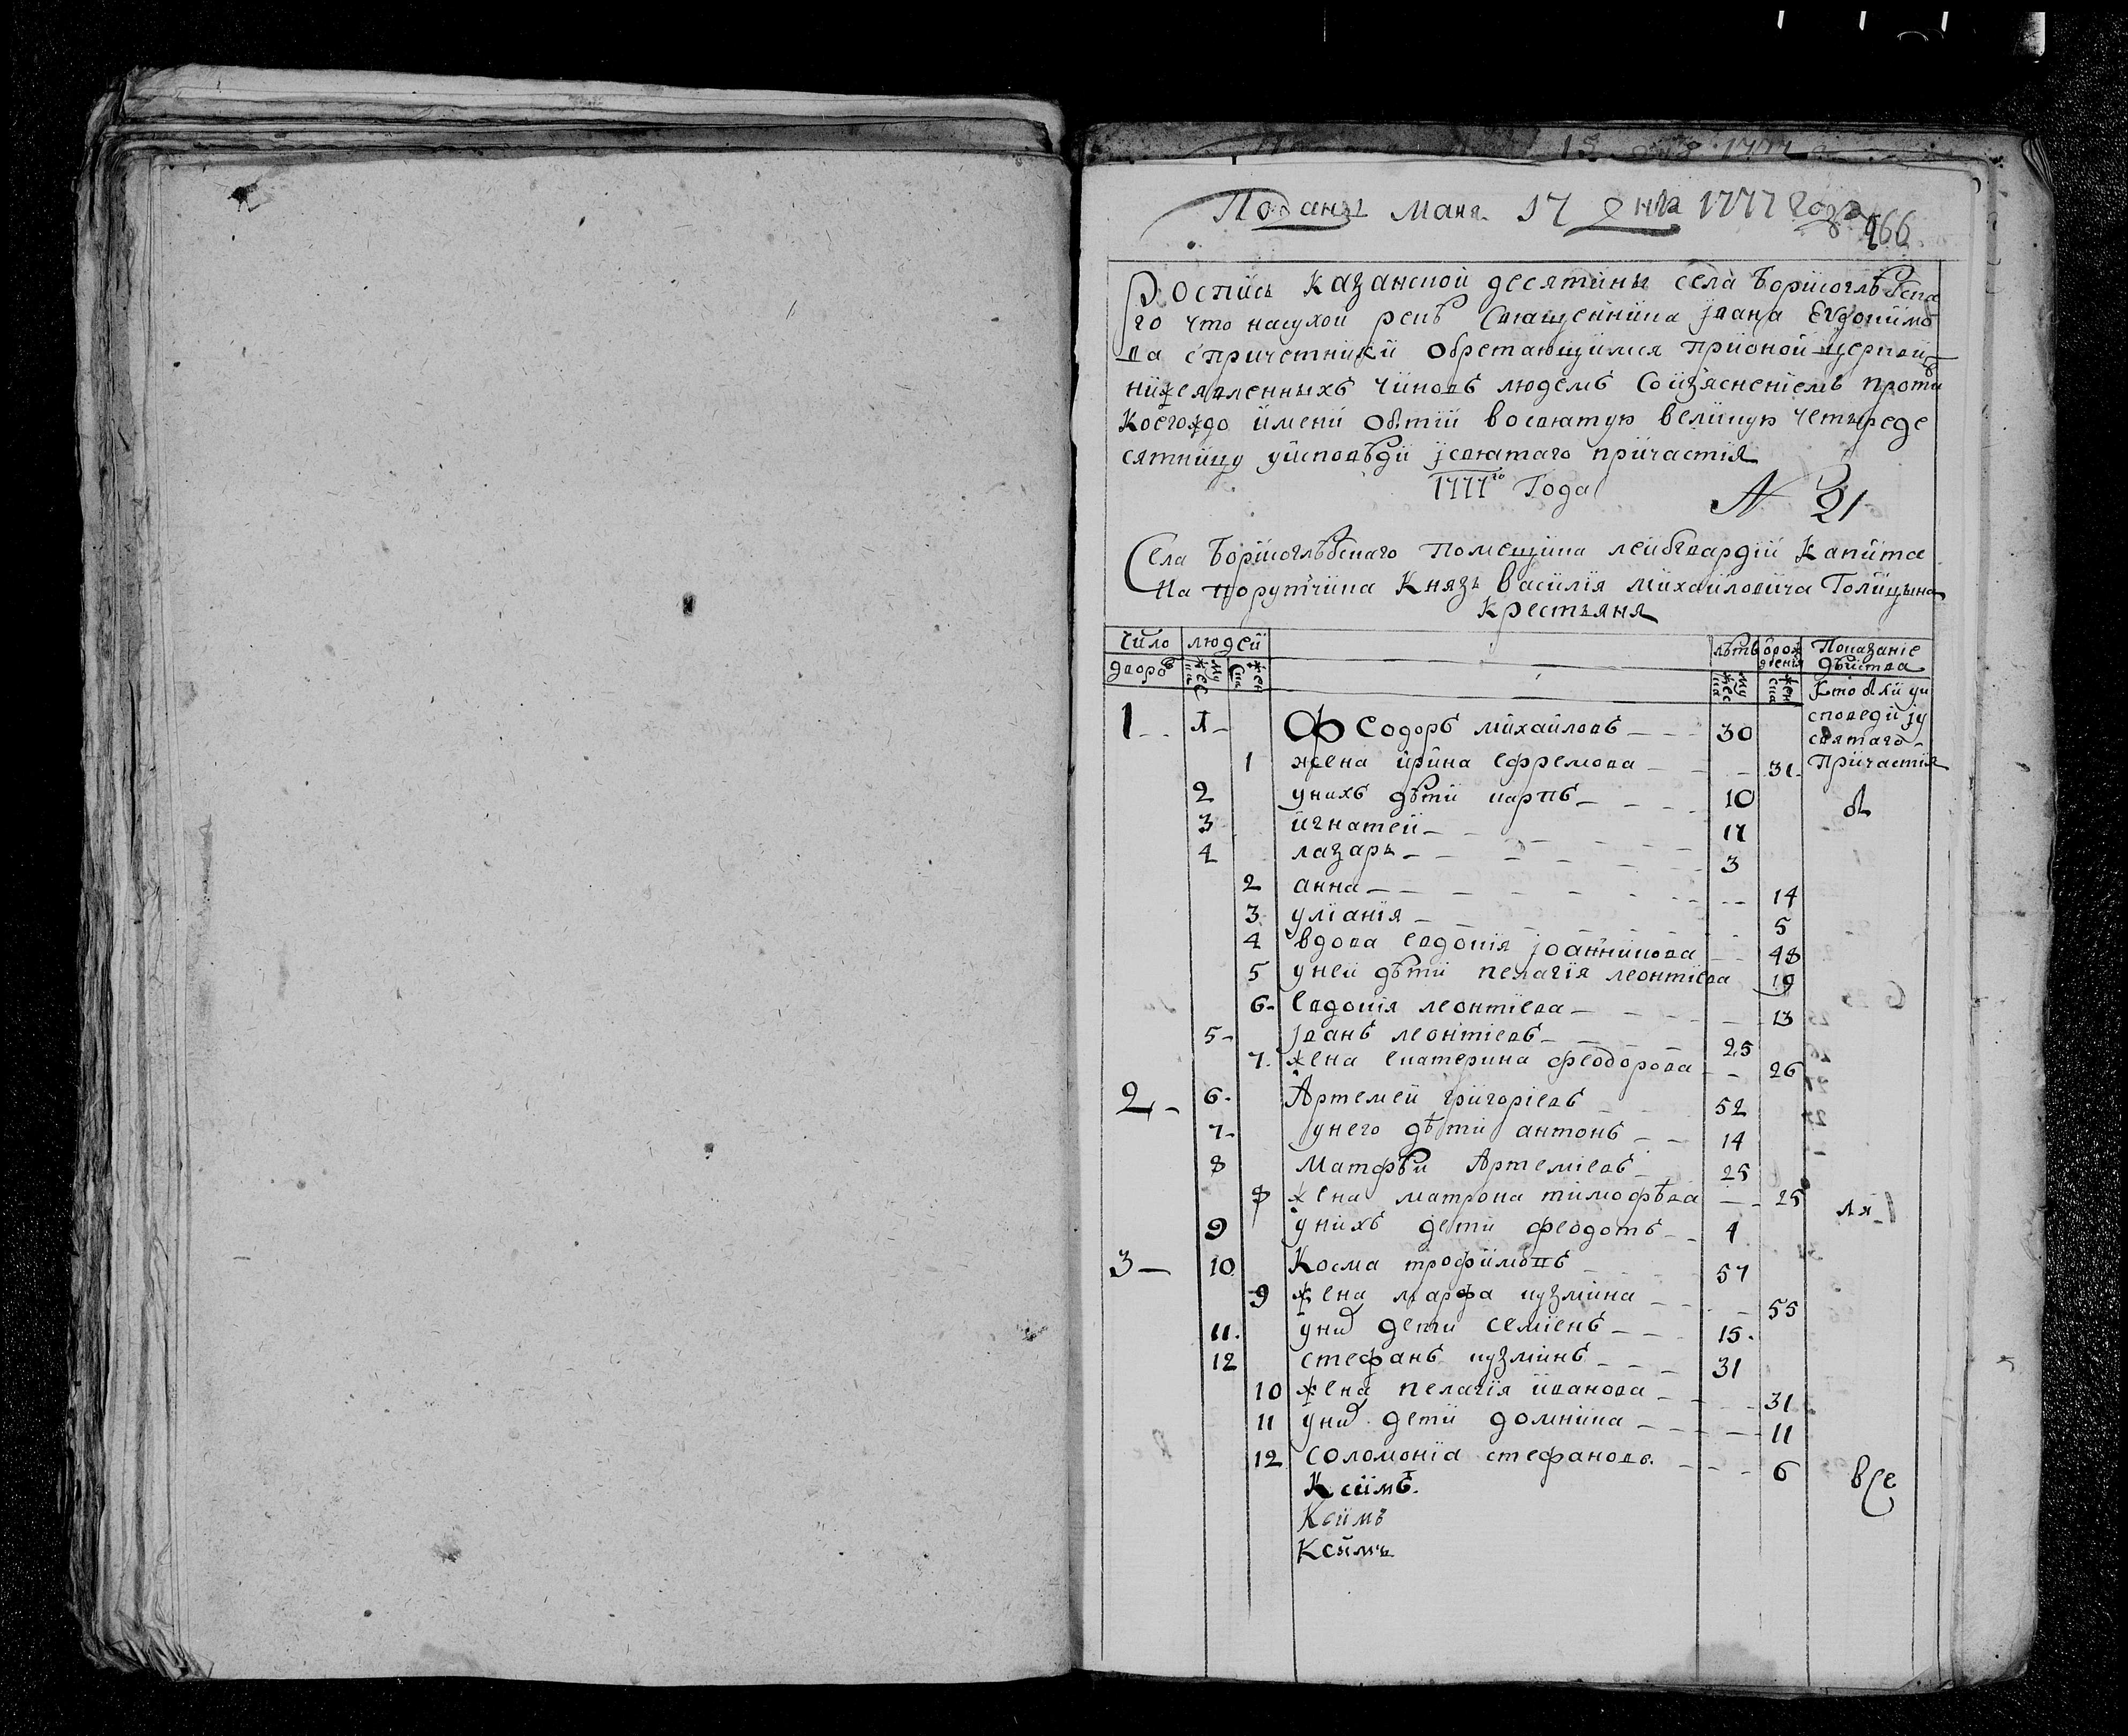 Поданы Маия 17 дня 1777 года
466
Роспись Казанской десятины села Борисоглѣбска
го что насухой рекѣ Священника Јвана Евдокимо
ва спричетники обретающимся прионой церкви
нижеявленныхъ чиновъ людемъ Соизяснениемъ противъ
Коегождо имени обытіи восвятую великую четыреде
сятницу уисповѣди јсвятаго причастия
1777го Года
N 21
Села Борисоглѣбскаго помещика лейбгвардіи Капита
на порутчика Князь Василія Михайловича Голицына
крестьяня
Число людей лѣтъ отрождения Показаніе дѣйства
дворовъ мужеска женска мужеска женска Кто был уи
споведи ју
святаго
Причастия
1 1 Феодоръ михайловъ 30
1 жена ирина ефремова 31
2 унихъ дѣти карпъ 10 бы
3 игнатей 11
4 лазарь 3
2 анна 14
3 уліанія 5
4 вдова евдокія јоанникова 48
5 уней дѣти пелагія леонтіева 19
6 Евдокія леонтіева 13
5 јванъ леонтіевъ 25
7 жена екатерина феодорова 26
2 6 Артемей григоріевъ 52
7 унего дѣти антонъ 14
8 Матфѣй Артеміевъ 25
8 жена матрона тимофѣва 25 ли
9 унихъ дети феодотъ 4
3 10 Косма трофимовъ 57
9 жена марфа кузмина 55
11 уних дети семіенъ 15
12 стефанъ кузминъ 31
10 жена пелагія иванова 31
11 уних дети домника 11
12 соломоніа стефанова 6 все
К симъ
К симъ
К симъ